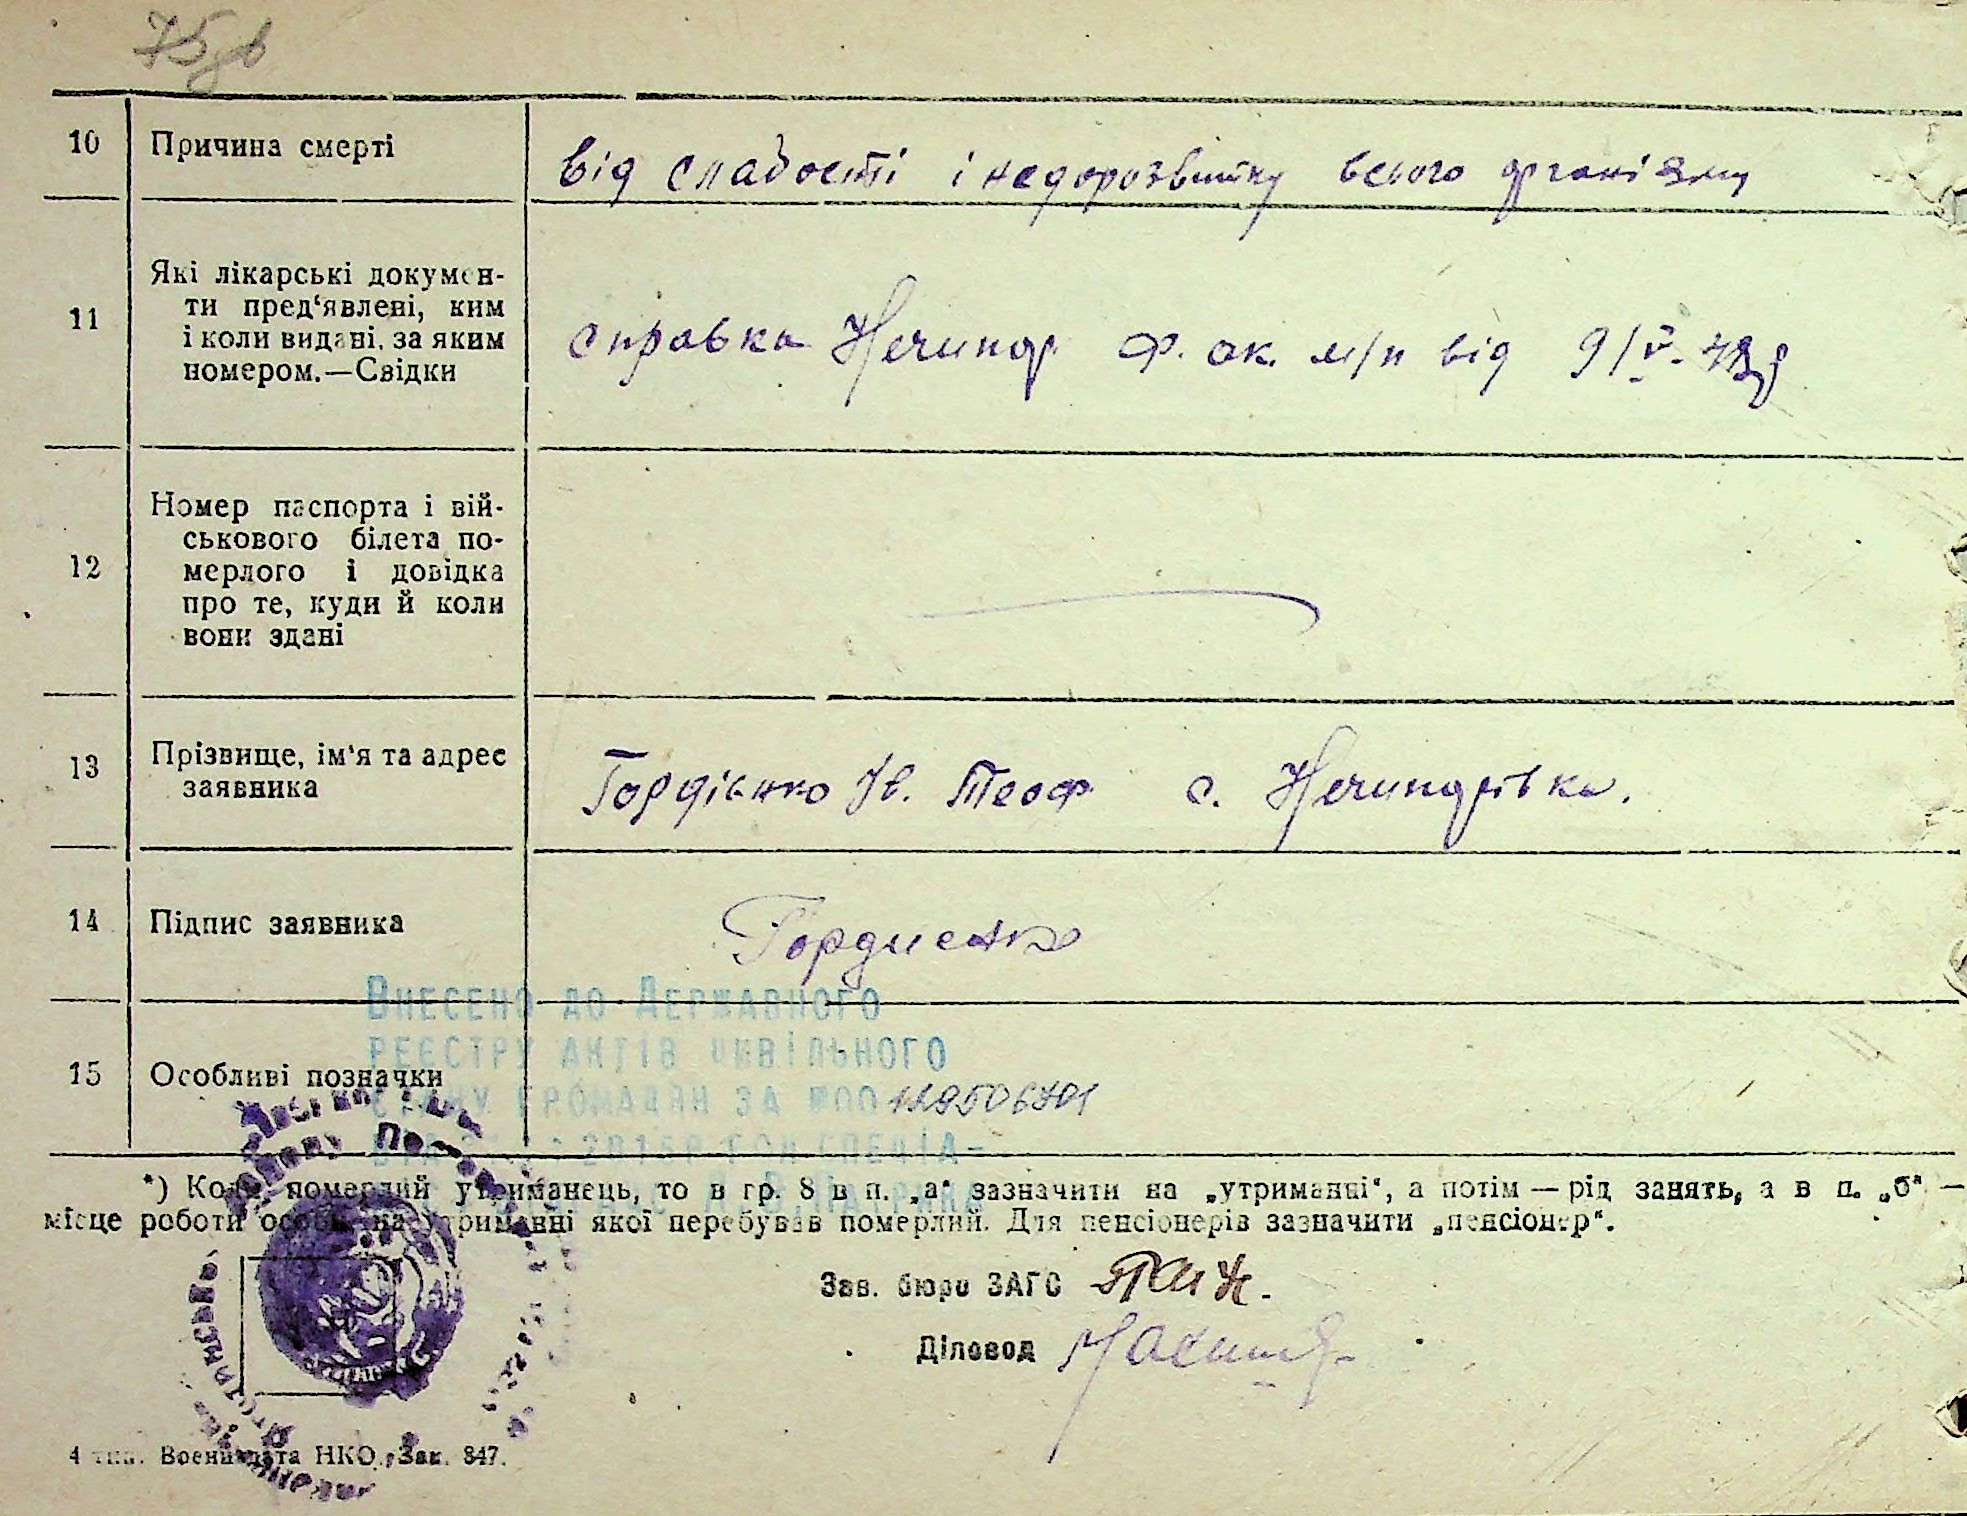 75зв
10 Причина смерті від слабості і недорозвитку всього організму
11 Які лікарські докумен-
ти пред‘явлені, ким
і коли видані, за яким
номером.—Свідки
справка Нечипор. Ф. ак. м/п від 9/V-
12 Номер паспорта і вій-
ськового білета по-
мерлого і довідка
про те, куди й коли
вони здані
13 Прізвище, ім‘я та адрес
заявника
Гордієнко Ів. Теоф. с. Нечипорівка.
14 Підпис заявника Гордиенко
Внесено до Державного
реєстру актів цивільного
15 Особливі позначки
стану громадян за №00129506701
*) Коли померлий утриманець, то в гр. 8 в п. „а“ зазначити на „утриманні“, а потім — рід занять, а в п. „б“ —
місце роботи особи, на утриманні якої перебував померлий. Для пенсіонерів зазначити „пенсіонер“.
Зав. бюро ЗАГС
Діловод
4 тип. Воениздата НКО. Зак. 847.